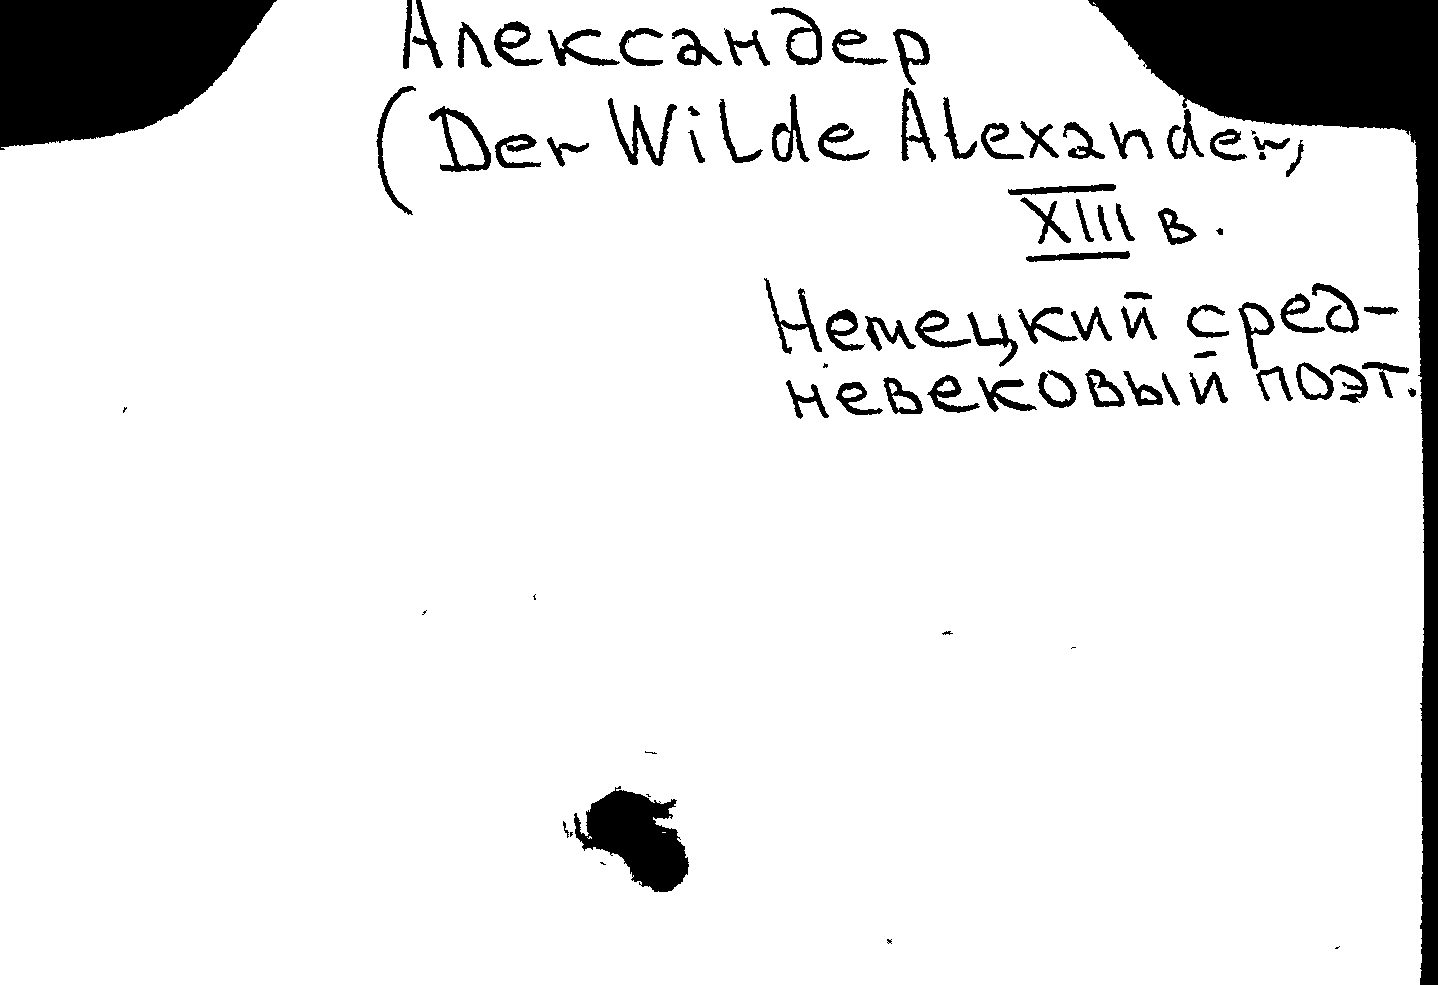 Александер
(Der Wilde Alexander,
XIII в.
Немецкий сред-
невековый поэт.